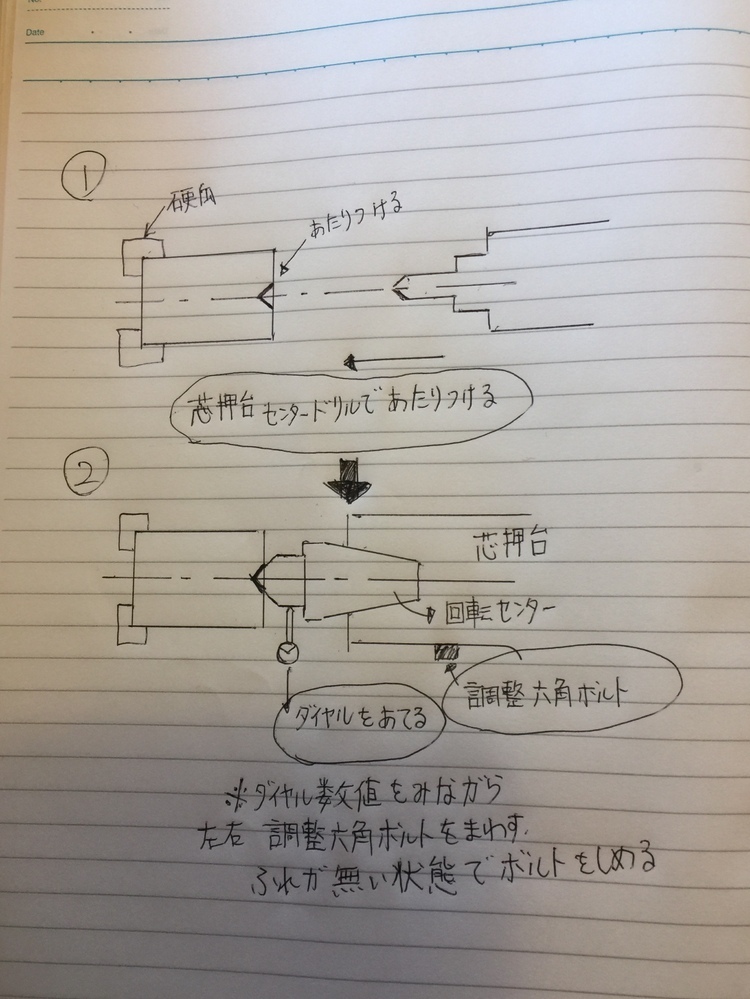 Date
①
硬爪
あたりつける
芯押台 センタードリルで あたりつける
②
芯押台
回転センター
調整六角ボルト
ダイヤルをあてる
※ダイヤル数値をみながら
左右 調整六角ボルトをまわす.
ふれが無い状態でボルトをしめる